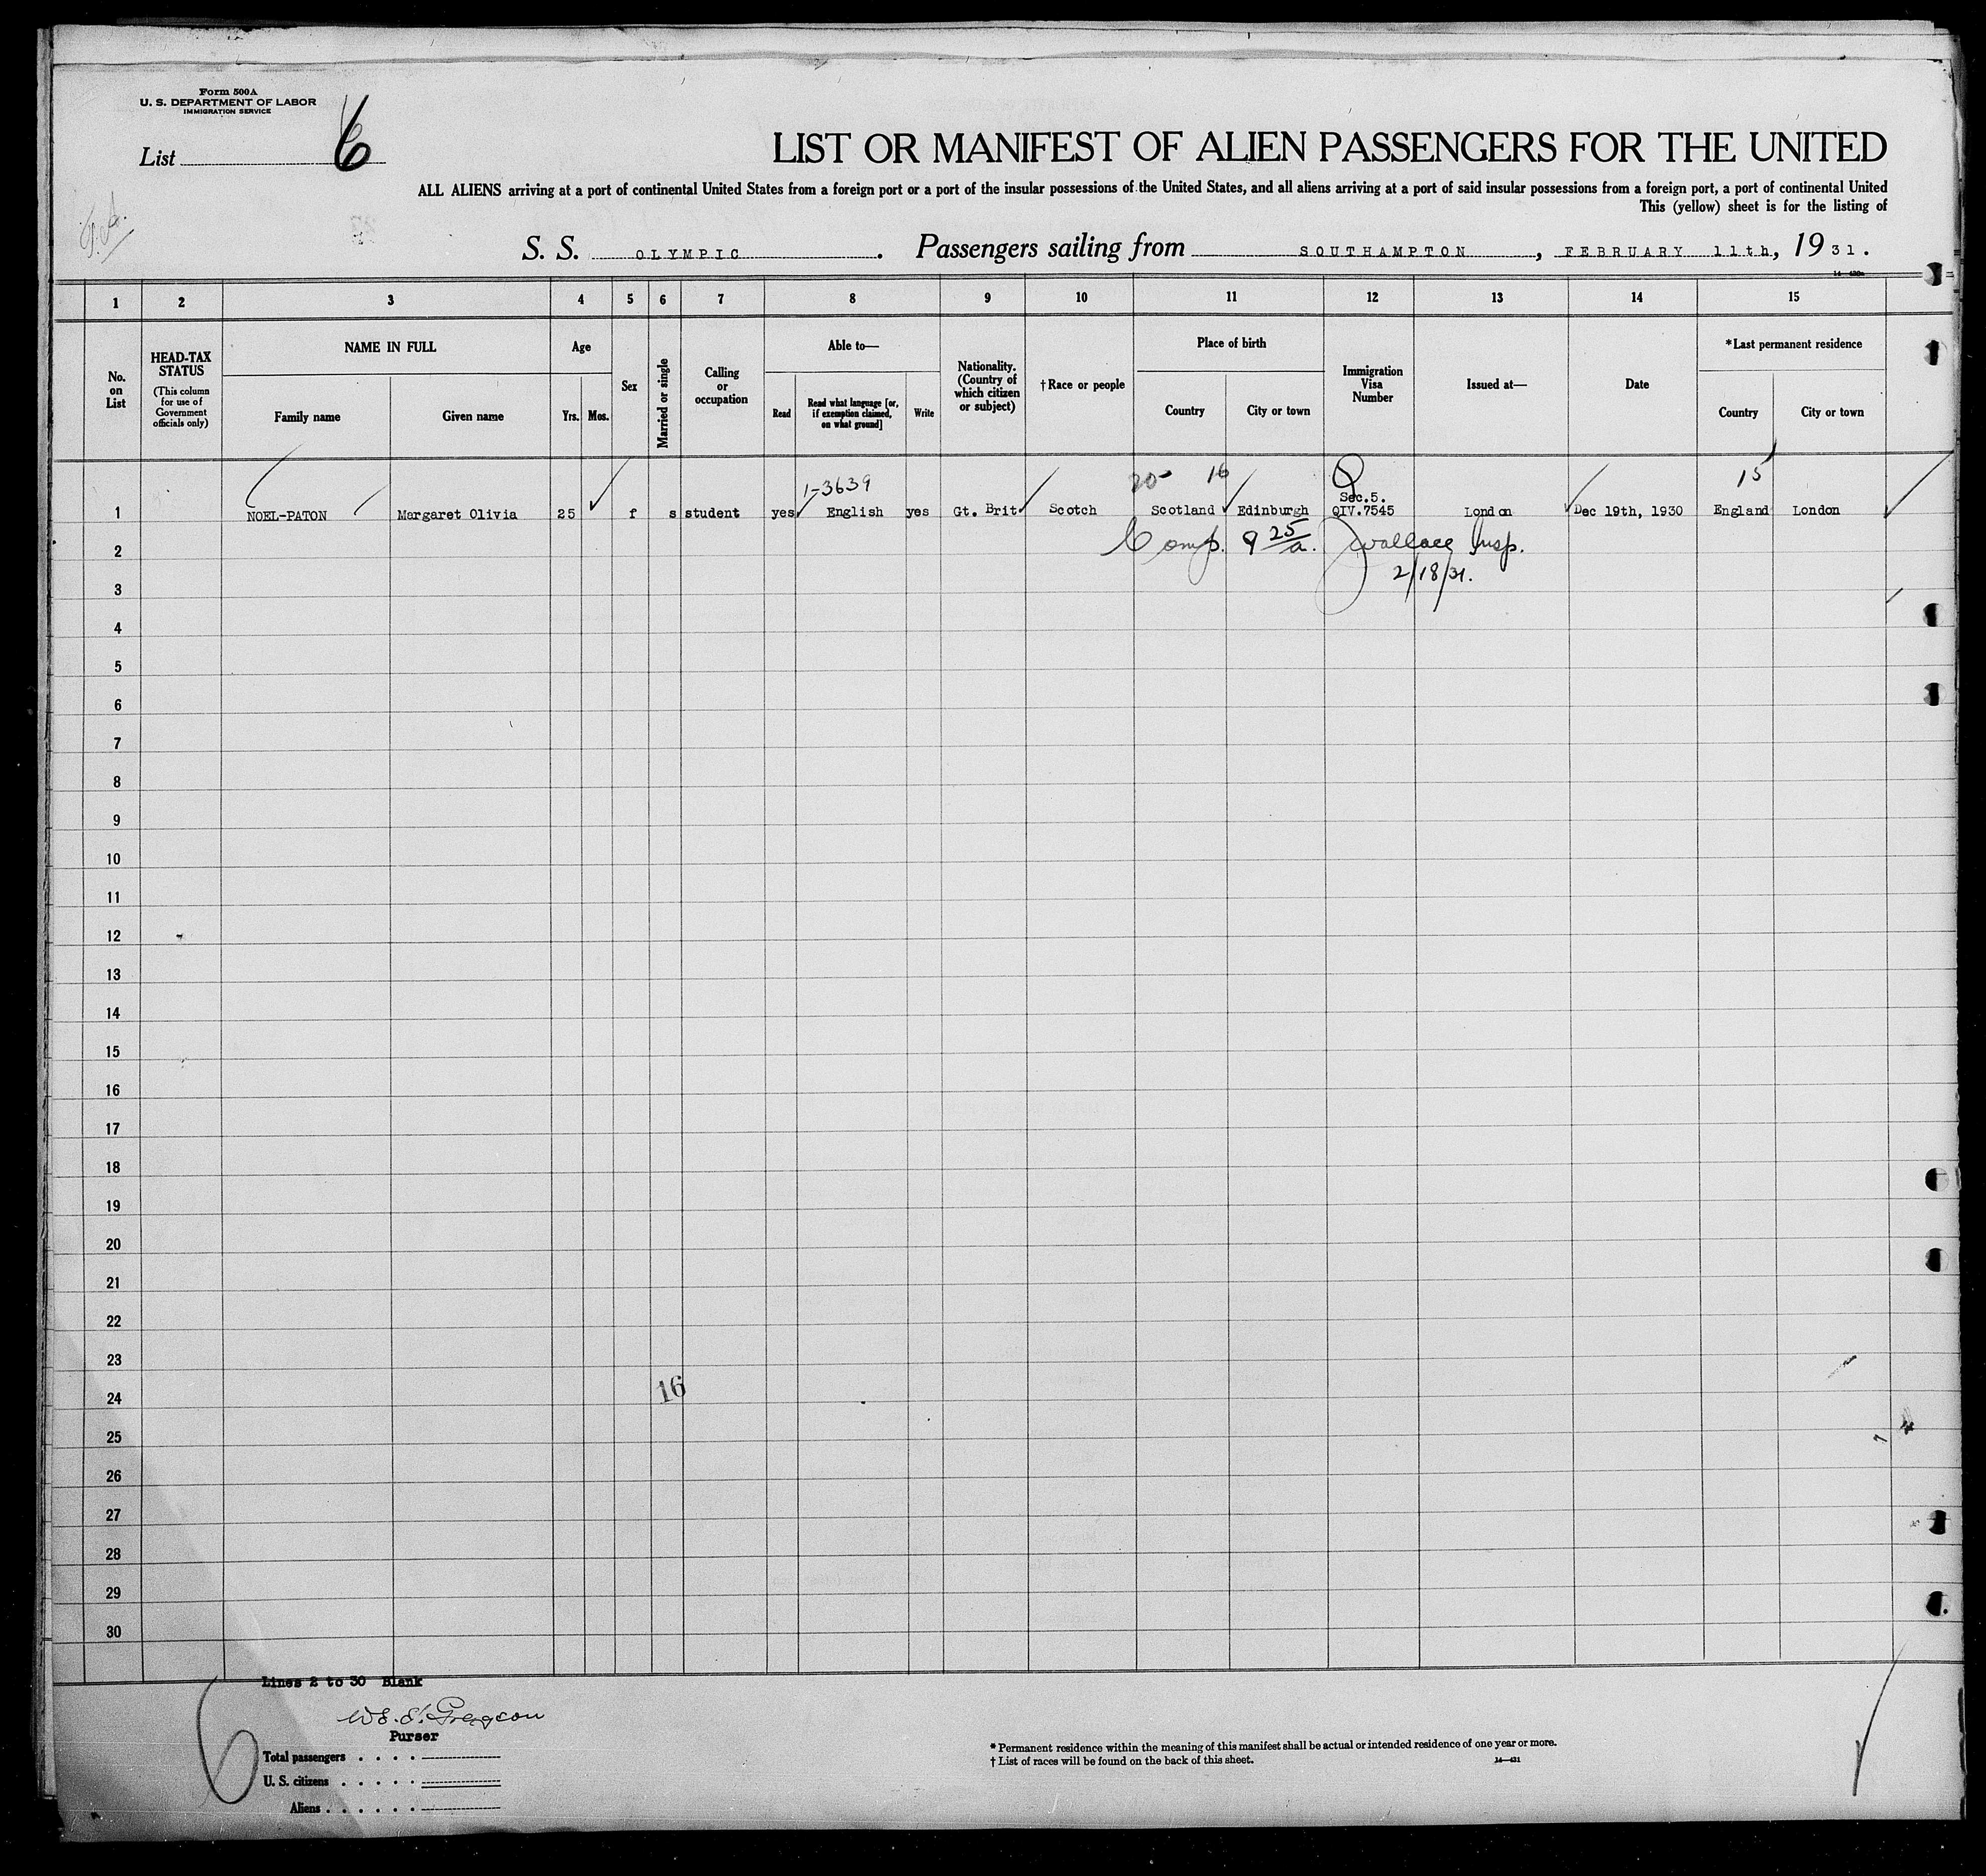 Form 500A
U. S. DEPARTMENT OF LABOR
IMMIGRATION SERVICE
List 6
LIST OR MANIFEST OF ALIEN PASSENGERS FOR THE UNITED
ALL ALIENS arriving at a port of continental United States from a foreign port or a port of the insular possessions of the United States, and all aliens arriving at a port of said insular possessions from a foreign port, a port of continental United
This (yellow) sheet is for the listing of
S. S. OLYMPIC. Passengers sailing from SOUTHAMPTON, FEBRUARY 11th, 1931.
1 2 3 4 5 6 7 8 9 10 11 12 13 14 15
No. on List
HEAD-TAX STATUS
(This column for use of Government officials only)
NAME IN FULL
Family name
Given name
Age
Yrs. Mos.
Sex
Married or single
Calling or occupation
Able to—
Read
Read what language [or, if exemption claimed, on what ground]
Write
Nationality. (Country of which citizen or subject)
†Race or people
Place of birth
Country
City or town
Immigration Visa Number
Issued at—
Date
*Last permanent residence
Country
City or town
1-3639 20 16 15
Sec.5.
1 NOEL-PATON Margaret Olivia 25 f s student yes English yes Gt. Brit Scotch Scotland Edinburgh QIV.7545 London Dec 19th, 1930 England London
Comp. 9 25/a. Wallace Insp.
2/18/31.
2
3
4
5
6
7
8
9
10
11
12
13
14
15
16
17
18
19
20
21
22
23
24
16
25
26
27
28
29
30
Lines 2 to 30 Blank
Purser
6
Total passengers . . . .
U. S. citizens . . . . .
Aliens . . . . . .
* Permanent residence within the meaning of this manifest shall be actual or intended residence of one year or more.
† List of races will be found on the back of this sheet.
14—431